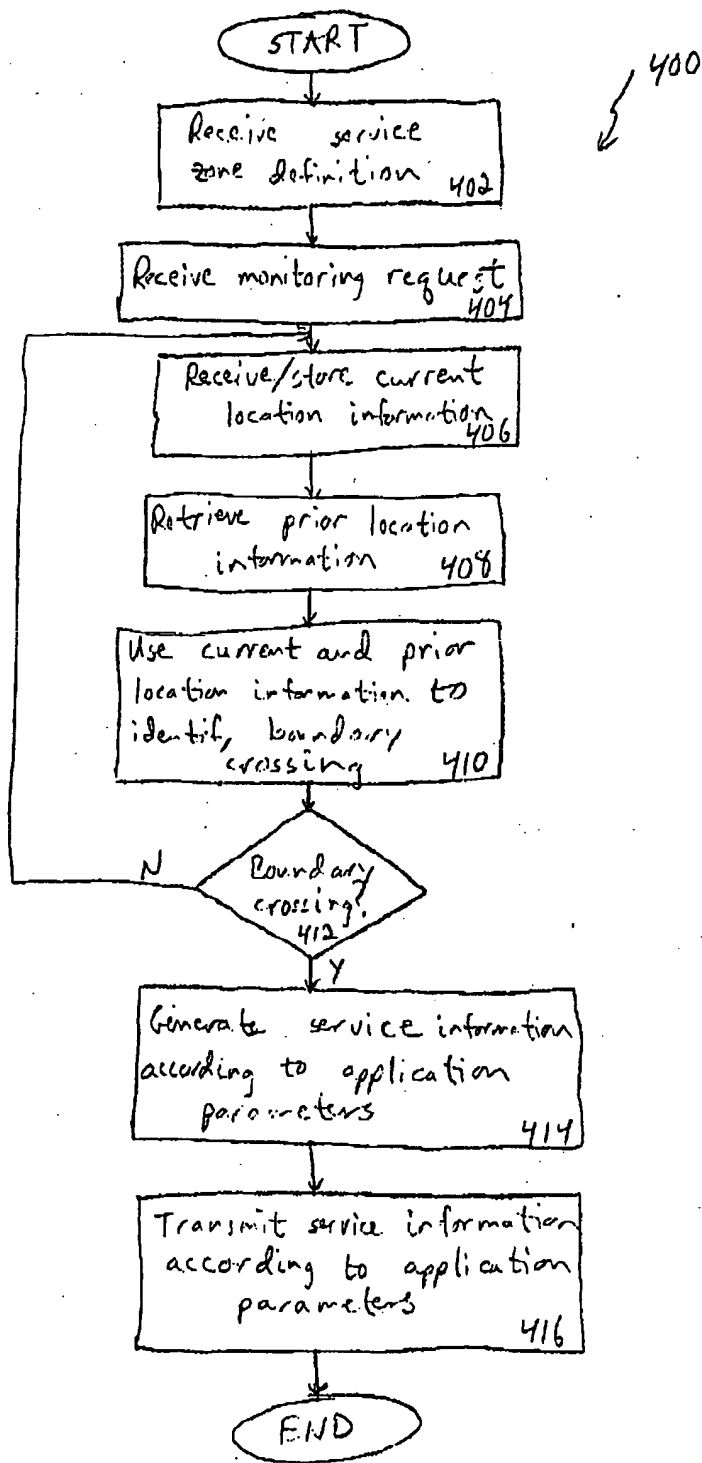 START
400
Receive service
zone definition
402
Receive monitoring request
404
Receive/store current
location information
406
Retrieve prior location
information
408
Use current and prior
location information to
identify boundary
crossing
410
N
Boundary
crossing?
412
Y
Generate service information
according to application
parameters
414
Transmit service information
according to application
parameters
416
END